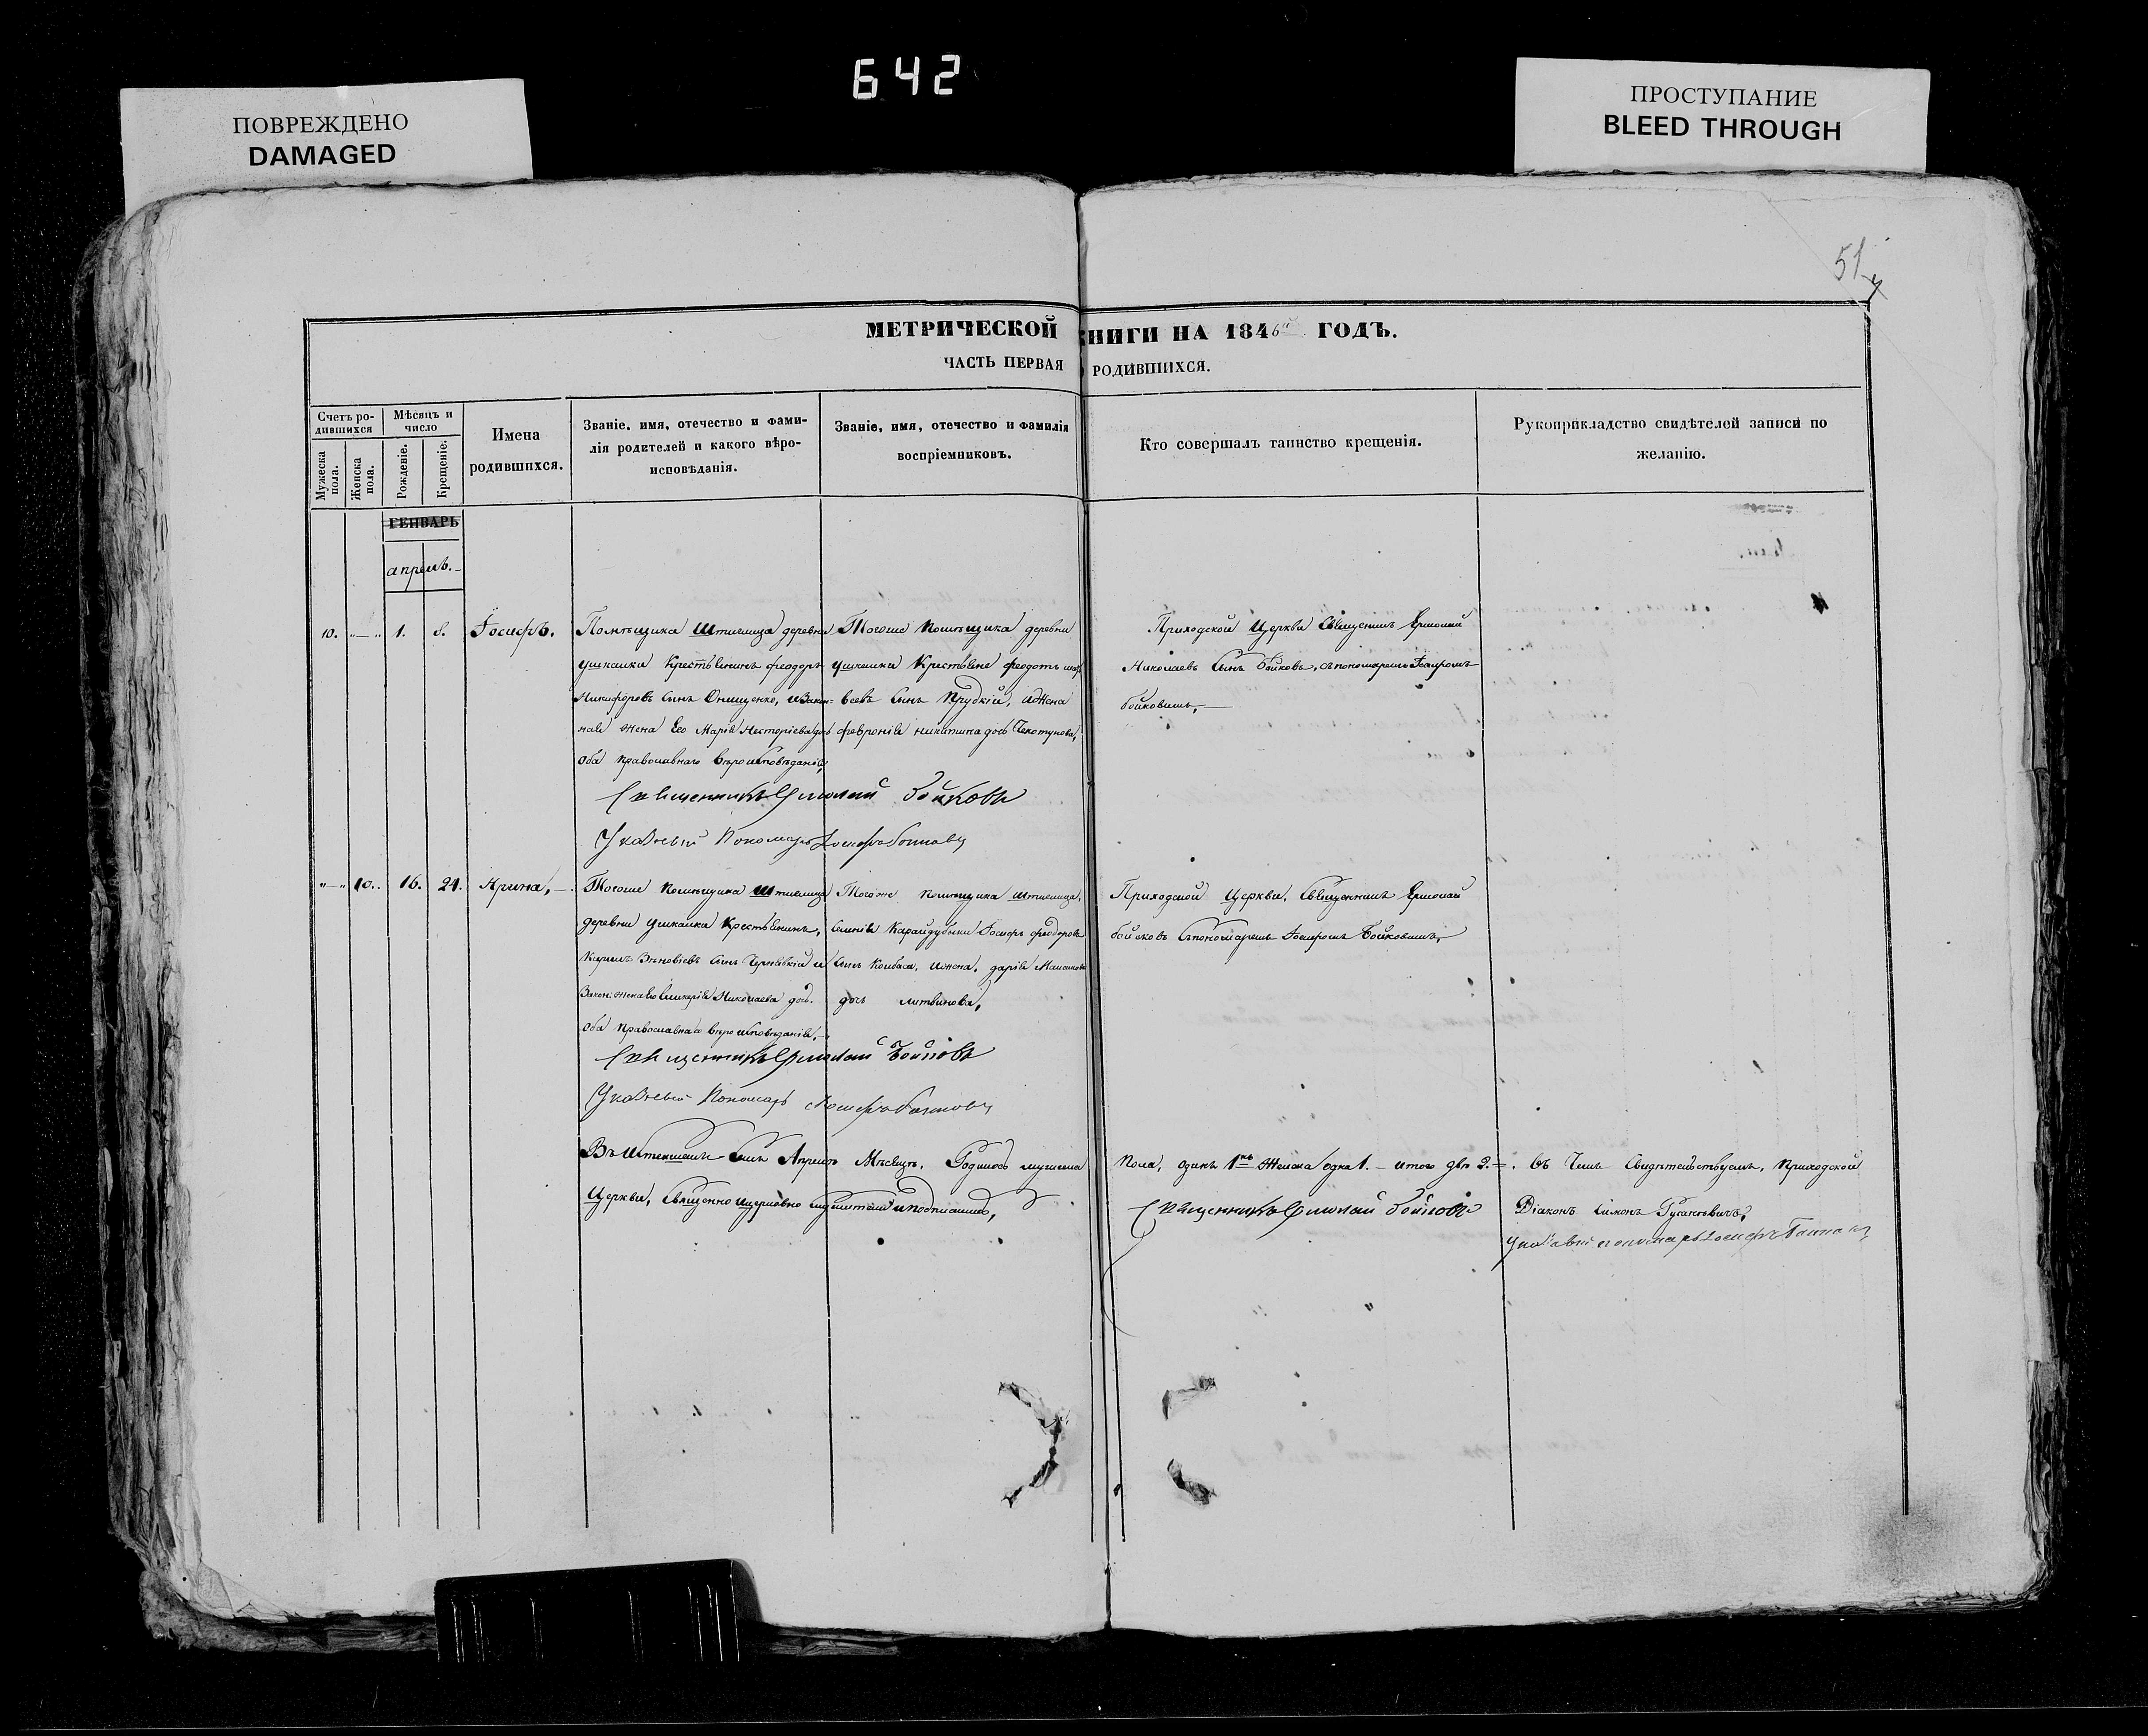 642
ПОВРЕЖДЕНО
DAMAGED
ПРОСТУПАНИЕ
BLEED THROUGH
51
МЕТРИЧЕСКОЙ КНИГИ НА 1846й ГОДЪ.
ЧАСТЬ ПЕРВАЯ О РОДИВШИХСЯ.
Счетъ родившихся
Мужеска пола.
Женска пола.
Мѣсяцъ и число
Рожденіе.
Крещеніе.
Имена родившихся.
Званіе, имя, отечество и фами-
лія родителей и какого вѣро-
исповѣданія.
Званіе, имя, отечество и фамилія
воспріемниковъ.
Кто совершалъ таинство крещенія.
Рукоприкладство свидѣтелей записи по
желанію.
ГЕНВАРЬ
апрель.
10. "—" 1. 8. Іосифъ.
Помѣщика деревни
ушкалки Крестьянинъ феодоръ
Никифоровъ Сынъ Онищенко, и Закон=
ная жена Его Марія Несторіева дочь
Оба православнаго вѣроисповѣданія,
Тогоже помѣщика деревни
ушкалки Крестьяне феодотъ
сынъ Прудкій, и Жена
февронія никитина дочь
Приходской Церкви Священникъ Ермолай
Николаевъ Сынъ Бойковъ, съ пономаремъ Іосифомъ
бойковымъ,
Священникъ Ермолай Бойковъ
Указный Пономарь Іосифъ Бойковъ
"—" 10. 16. 21. Ирина,
Тогоже помѣщика
деревни ушкалки Крестьянинъ,
Кирилъ Сынъ и
Закон: жена Его Николаева дочь.
Оба православнаго вѣроисповѣданія,
Тогоже помѣщика
Іосифъ феодоровъ
Сынъ Колбаса, и жена, дарія
дочь литвинова,
Приходской Церкви, Священникъ Ермолай
бойковъ съ пономаремъ Іосифомъ Бойковымъ,
Священникъ Ермолай Бойковъ
Указный Пономарь Іосифъ Бойковъ
Въ семъ Апрелѣ Мѣсяцѣ, Родилось мужеска пола, одинъ 1нъ Женска одна 1. — итого два 2. =. Въ Чемъ Свидѣтельствуемъ, Приходской
Церкви, Священно церковно служители и подписались,
Священникъ Ермолай Бойковъ
Діаконъ Симонъ
Указный пономарь Іосифъ Бойковъ